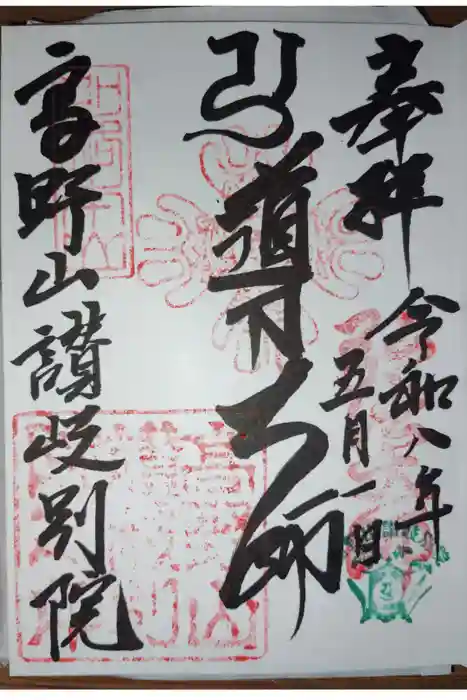 奉拝
令和八年
五月一日
引導大師
高野山讃岐別院